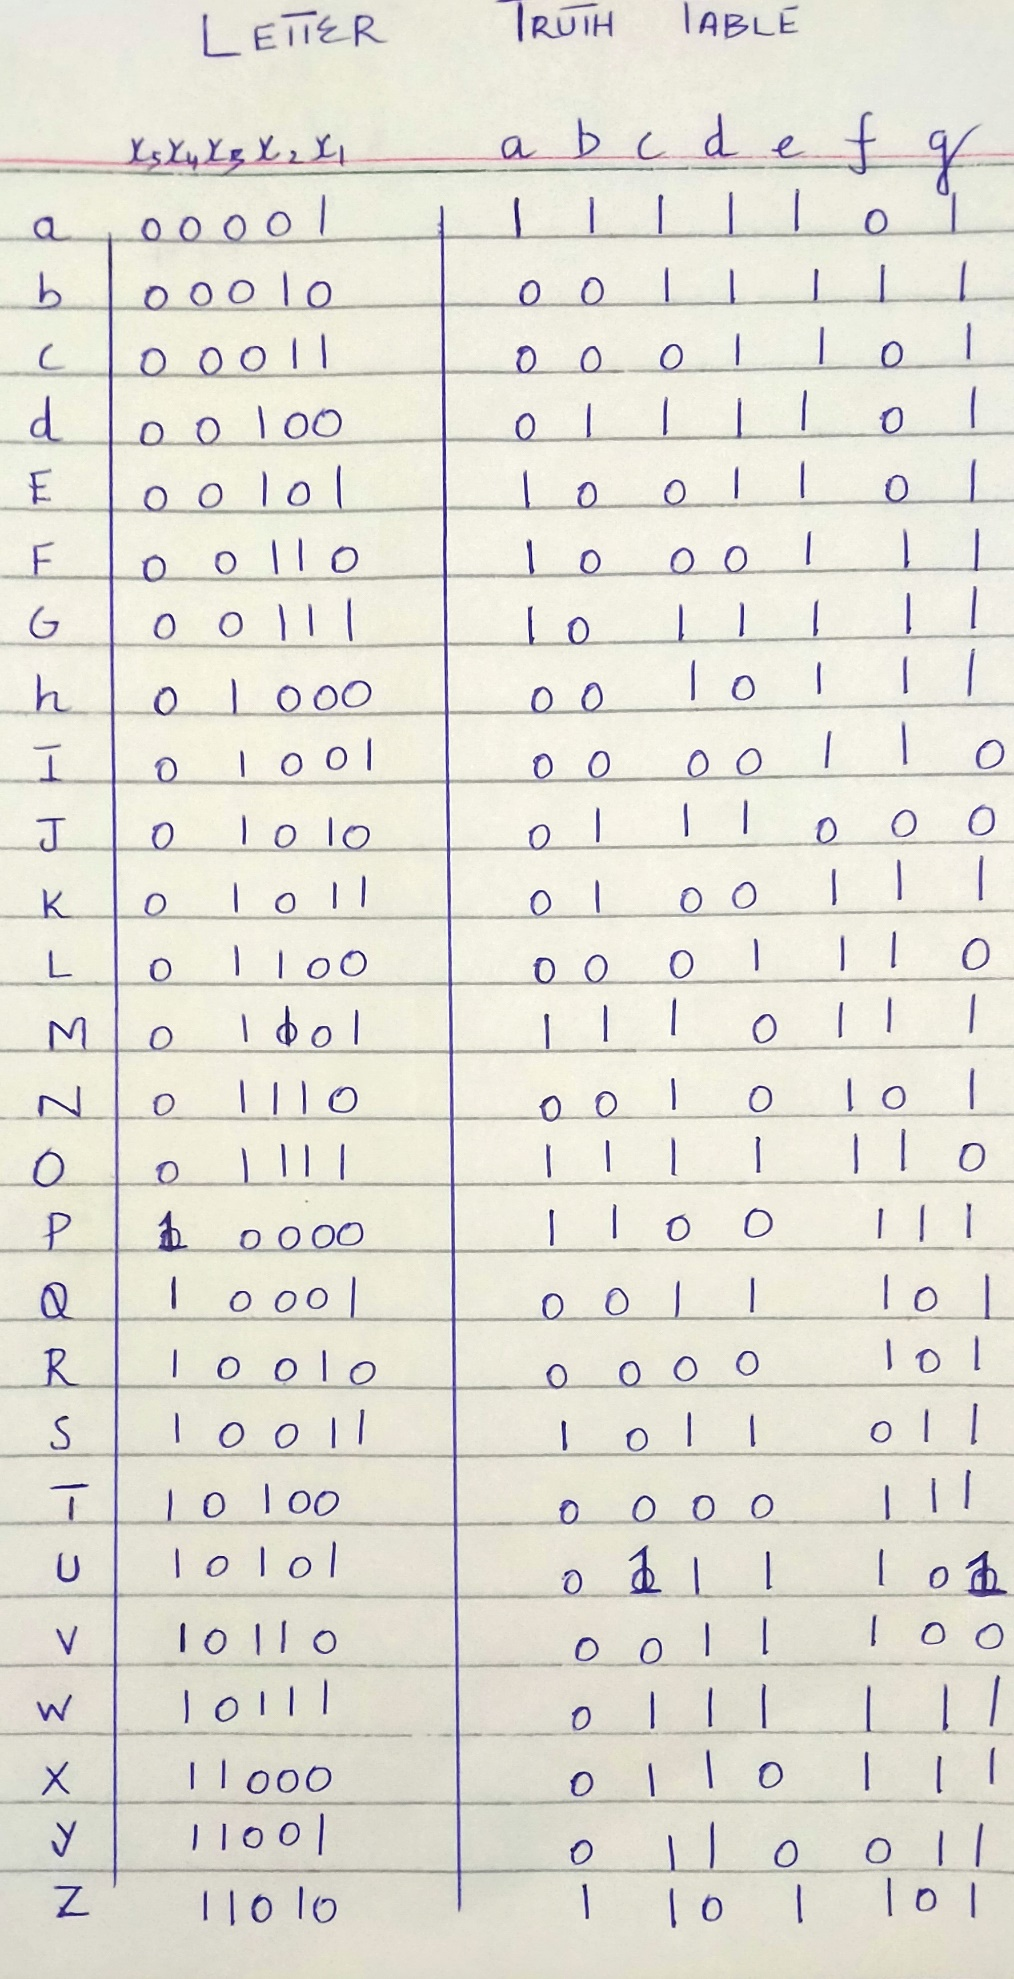 LETTER TRUTH TABLE
x5 x4 x3 x2 x1 a b c d e f g
a 0 0 0 0 1 1 1 1 1 1 0 1
b 0 0 0 1 0 0 0 1 1 1 1 1
c 0 0 0 1 1 0 0 0 1 1 0 1
d 0 0 1 0 0 0 1 1 1 1 0 1
E 0 0 1 0 1 1 0 0 1 1 0 1
F 0 0 1 1 0 1 0 0 0 1 1 1
G 0 0 1 1 1 1 0 1 1 1 1 1
h 0 1 0 0 0 0 0 1 0 1 1 1
I 0 1 0 0 1 0 0 0 0 1 1 0
J 0 1 0 1 0 0 1 1 1 0 0 0
K 0 1 0 1 1 0 1 0 0 1 1 1
L 0 1 1 0 0 0 0 0 1 1 1 0
M 0 1 1 0 1 1 1 1 0 1 1 1
N 0 1 1 1 0 0 0 1 0 1 0 1
O 0 1 1 1 1 1 1 1 1 1 1 0
P 1 0 0 0 0 1 1 0 0 1 1 1
Q 1 0 0 0 1 0 0 1 1 1 0 1
R 1 0 0 1 0 0 0 0 0 1 0 1
S 1 0 0 1 1 1 0 1 1 0 1 1
T 1 0 1 0 0 0 0 0 0 1 1 1
U 1 0 1 0 1 0 1 1 1 1 0 1
V 1 0 1 1 0 0 0 1 1 1 0 0
W 1 0 1 1 1 0 1 1 1 1 1 1
X 1 1 0 0 0 0 1 1 0 1 1 1
y 1 1 0 0 1 0 1 1 0 0 1 1
Z 1 1 0 1 0 1 1 0 1 1 0 1